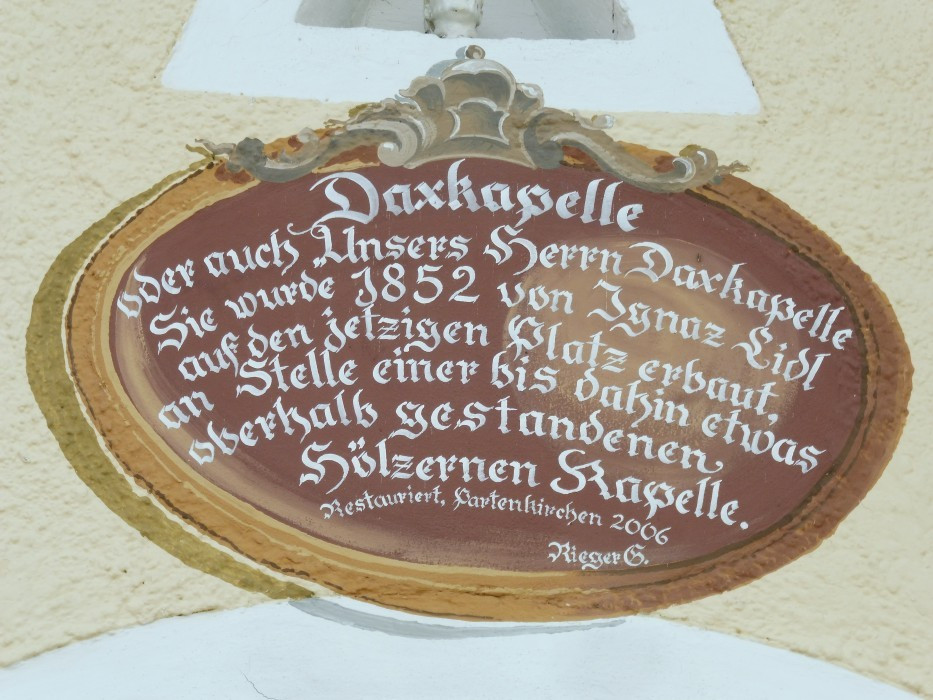 Daxkapelle
oder auch „Unsers Herrn Daxkapelle
Sie wurde 1852 von Ignaz Lidl
auf den jetzigen Platz erbaut,
an Stelle einer bis dahin etwas
oberhalb gestandenen
Hölzernen Kapelle.
Restauriert, Partenkirchen 2006
Rieger G.